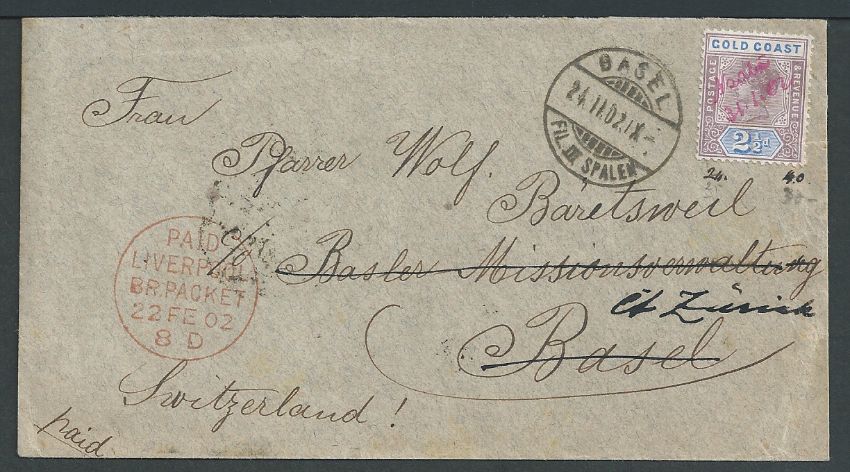 GOLD COAST
POSTAGE
& REVENUE
2½d
BASEL
24.II.02.IX-
FIL. III SPALEN
24. 40
Frau
Pfarrer Wolf.
Bäretsweil
c/o
Basler Missionsverwaltung
Ct Zürich
Basel
Switzerland!
paid
PAID
LIVERPOOL
BR.PACKET
22 FE 02
8 D